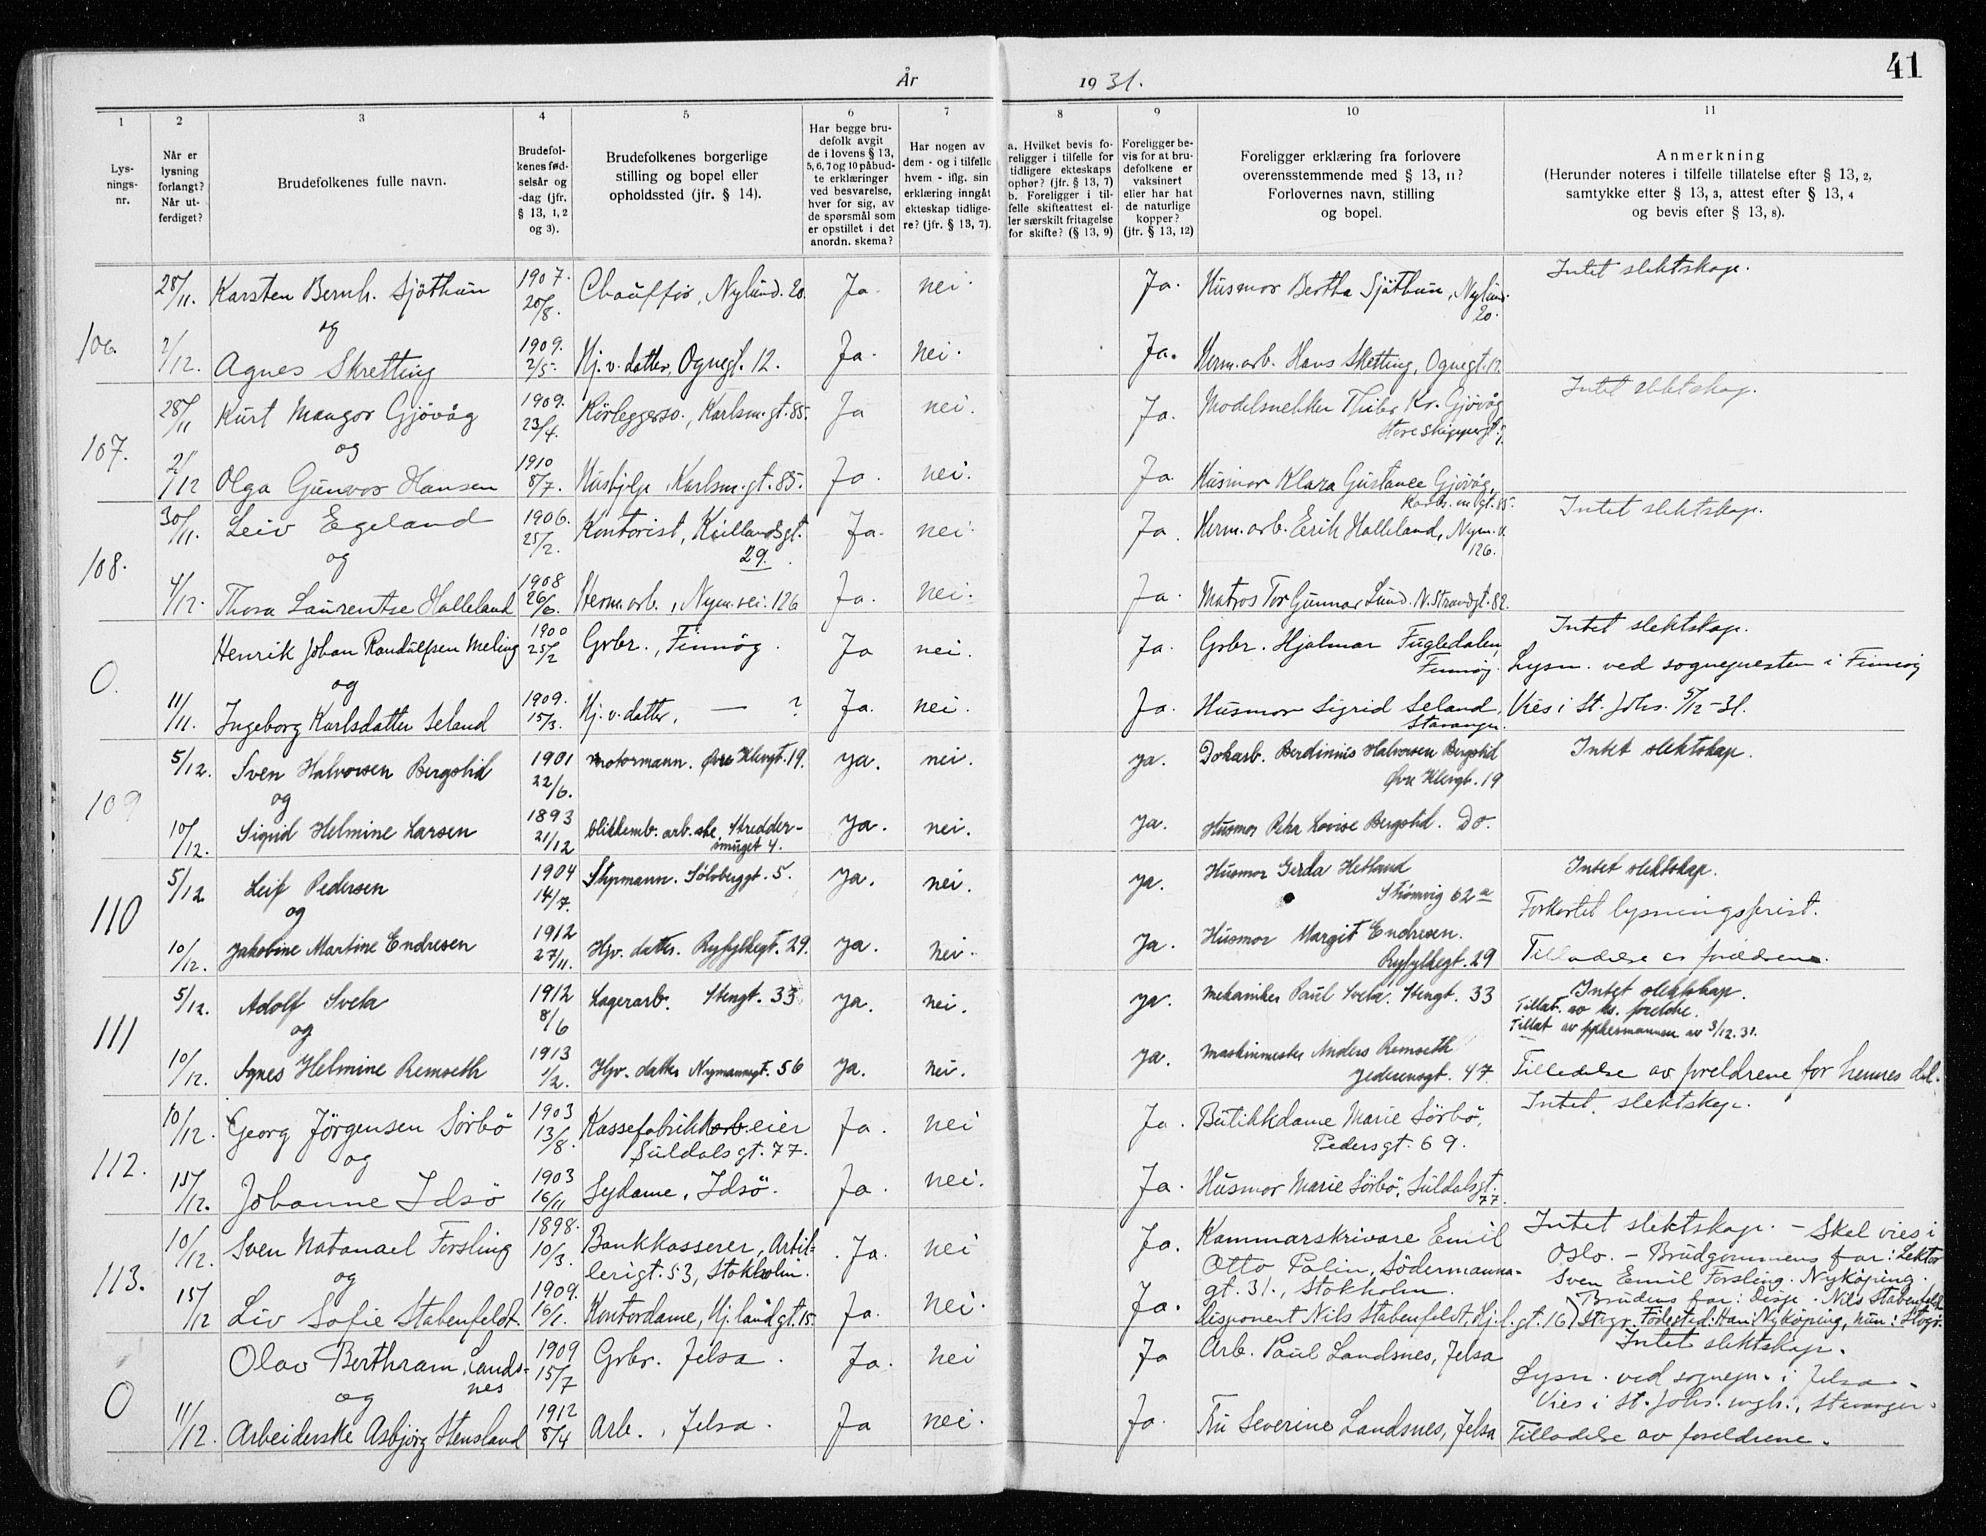 41
År 1931.
1 2 3 4 5 6 7 8 9 10 11
Lys-
nings-
nr.
Når er
lysning
forlangt?
Når ut-
ferdiget?
Brudefolkenes fulle navn.
Brudefol-
kenes fød-
selsår og
-dag (jfr.
§ 13, 1, 2
og 3).
Brudefolkenes borgerlige
stilling og bopel eller
opholdssted (jfr. § 14).
Har begge bru-
defolk avgit
de i lovens § 13,
5, 6, 7 og 10 påbud-
te erklæringer
ved besvarelse,
hver for sig, av
de spørsmål som
er opstillet i det
anordn. skema?
Har nogen av
dem - og i tilfelle
hvem - iflg. sin
erklæring inngåt
ekteskap tidlige-
re? (jfr. § 13, 7).
a. Hvilket bevis fo-
religger i tilfelle for
tidligere ekteskaps
ophør? (jfr. § 13, 7)
b. Foreligger i til-
felle skifteattest el-
ler særskilt fritagelse
for skifte? (§ 13, 9)
Foreligger be-
vis for at bru-
defolkene er
vaksinert
eller har hat
de naturlige
kopper?
(jfr. § 13, 12)
Foreligger erklæring fra forlovere
overensstemmende med § 13, 11?
Forlovernes navn, stilling
og bopel.
Anmerkning
(Herunder noteres i tilfelle tillatelse efter § 13, 2,
samtykke efter § 13, 3, attest efter § 13, 4
og bevis efter § 13, 8).
106. 28/11. Karsten Bernh. Sjöthun 1907. 20/8. Chaufför, Nylund. 20. Ja. nei. Ja. Husmor Bertha Sjöthun, Nylund. 20. Intet slektskap.
og
2/12. Agnes Skretting 1909. 2/5. Hj. v. datter, Ognegt. 12. Ja. nei. Ja. Herm. arb. Hans Skretting, Ognegt. 12
107. 28/11 Kurt Mangor Gjövåg 1909. 23/4. Rörleggersv., Karlsm. gt. 85. Ja nei. Ja. Modelsnekker Thilor Kr. Gjövåg Store Skippergt. Intet slektskap.
og
2/12 Olga Gunvor Hansen 1910 8/7. Hushjelp, Karlsm. gt. 85. Ja. nei. Ja. Husmor Klara Gustava Gjövåg, Karlsm. gt. 85.
108. 30/11. Leiv Egeland 1906. 25/2. Kontorist, Kiellandsgt. 29. Ja. nei. Ja. Herm. arb. Erik Halleland, Nym. v. 126. Intet slektskap.
og
4/12. Thora Laurentse Halleland 1908 26/6. Herm. arb., Nym. vei. 126 Ja. nei. Ja. Matros Tor Gunnar Lund. N. Strandgt. 82.
0. Henrik Johan Randulfsen Meling 1900 25/2 Grbr., Finnöy. Ja nei. Ja. Grbr. Hjalmar Fugledalen, Finnöy. Intet slektskap.
og
Lysn. ved sognepresten i Finnöy
11/11. Ingeborg Karlsdatter Seland 1909. 15/3. Hj. v. datter, — ? Ja. nei. Ja. Husmor Sigrid Seland, Stavanger. Vies i St. Johs. 5/12-31.
109 5/12. Sven Halvorsen Bergslid 1901 22/6. Motormann. Øvre Klevgt. 19. ja. nei. ja. Dokarb. Berdinius Halvorsen Bergslid Øvre Klevgt. 19 Intet slektskap.
og
10/12. Sigrid Helmine Larsen 1893 21/12 blikkemb. arb. ske. Stredder- smuget 4. ja. nei. ja. Husmor Petra Lovise Bergslid. Do.
110 5/12 Leif Pedersen 1904 14/7. Styrmann. Sölvberggt. 5. ja. nei. ja. Husmor Gerda Hetland Strömvig 62 a Intet slektskap.
og
Forkortet lysningsfrist.
10/12. Jakobine Martine Endresen 1912 27/11. Hjv. datter. Ryfylkegt. 29. ja. nei. ja. Husmor Margit Endresen. Ryfylkegt. 29 Tilladelse av foreldrene.
111 5/12. Adolf Sveta 1912 8/6 Lagerarb. Stengt. 33 ja. nei. ja. Mekaniker Paul Sveta. Stengt. 33 Intet slektskap.
og
Tillat. av hs. foreldre.
Tillat av fylkesmannen av 3/12.31.
10/12. Agnes Helmine Remseth 1913 1/2. Hjv. datter Nymannsgt. 56 ja. nei. ja. Maskinmester Anders Remseth Jederensgt. 47. Tilladelse av foreldrene for hennes del.
112. 10/12. Georg Jörgensen Sörbö 1903 13/8. Kassefabrikkarbeier Suldalsgt. 77. Ja. nei Ja. Butikkdame Marie Sörbö, Pedersgt. 69. Intet slektskap.
og
15/12. Johanne Idsö 1903 16/11 Sydame, Idsö. Ja. nei. Ja. Husmor Marie Sörbö, Suldalsgt. 77.
113. 10/12. Sven Natanael Forsling 1898. 10/3. Bankkasserer, Artil- lerigt. 53, Stokholm. Ja. nei Ja. Kammarskrivare Emil Otto Polin, Södermanna- gt. 31., Stokholm. Intet slektskap. - Skal vies i
Oslo. - Brudgommens far: Lektor
Sven Emil Forsling. Nyköping.
og
15/12 Liv Sofie Stabenfeldt 1909. 16/1. Kontordame, Hj. landgt. 15. Ja. nei. Ja. Disponent Nils Stabenfeldt, Hj. l. gt. 16
Brudens far: Disp. Nils Stabenfeldt
Stvgr. Födested: Han: Nyköping, hun: Stvgr.
0 Olav Berthram Lands- nes 1909 15/7 Grbr. Jelsa. Ja. nei Ja Arb. Paul Landsnes, Jelsa Intet slektskap.
og
Lysn. ved sognepr. i Jelsa.
Vies i St. Johs. mgh., Stavanger.
11/12. Arbeiderske Asbjörg Stensland 1912 8/4 Arb., Jelsa. Ja nei. Ja. Fru Severine Landsnes, Jelsa Tilladelse av foreldrene.